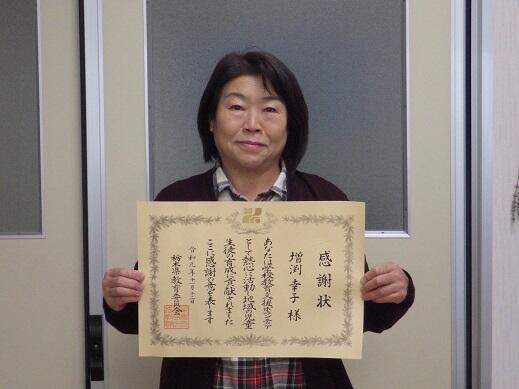 感謝状
増渕幸子様
あなたは学校教育支援ボランティア
として熱心に活動し地域の児童
生徒の育成に貢献されました
ここに感謝の意を表します
令和元年十一月十一日
栃木県教育委員会